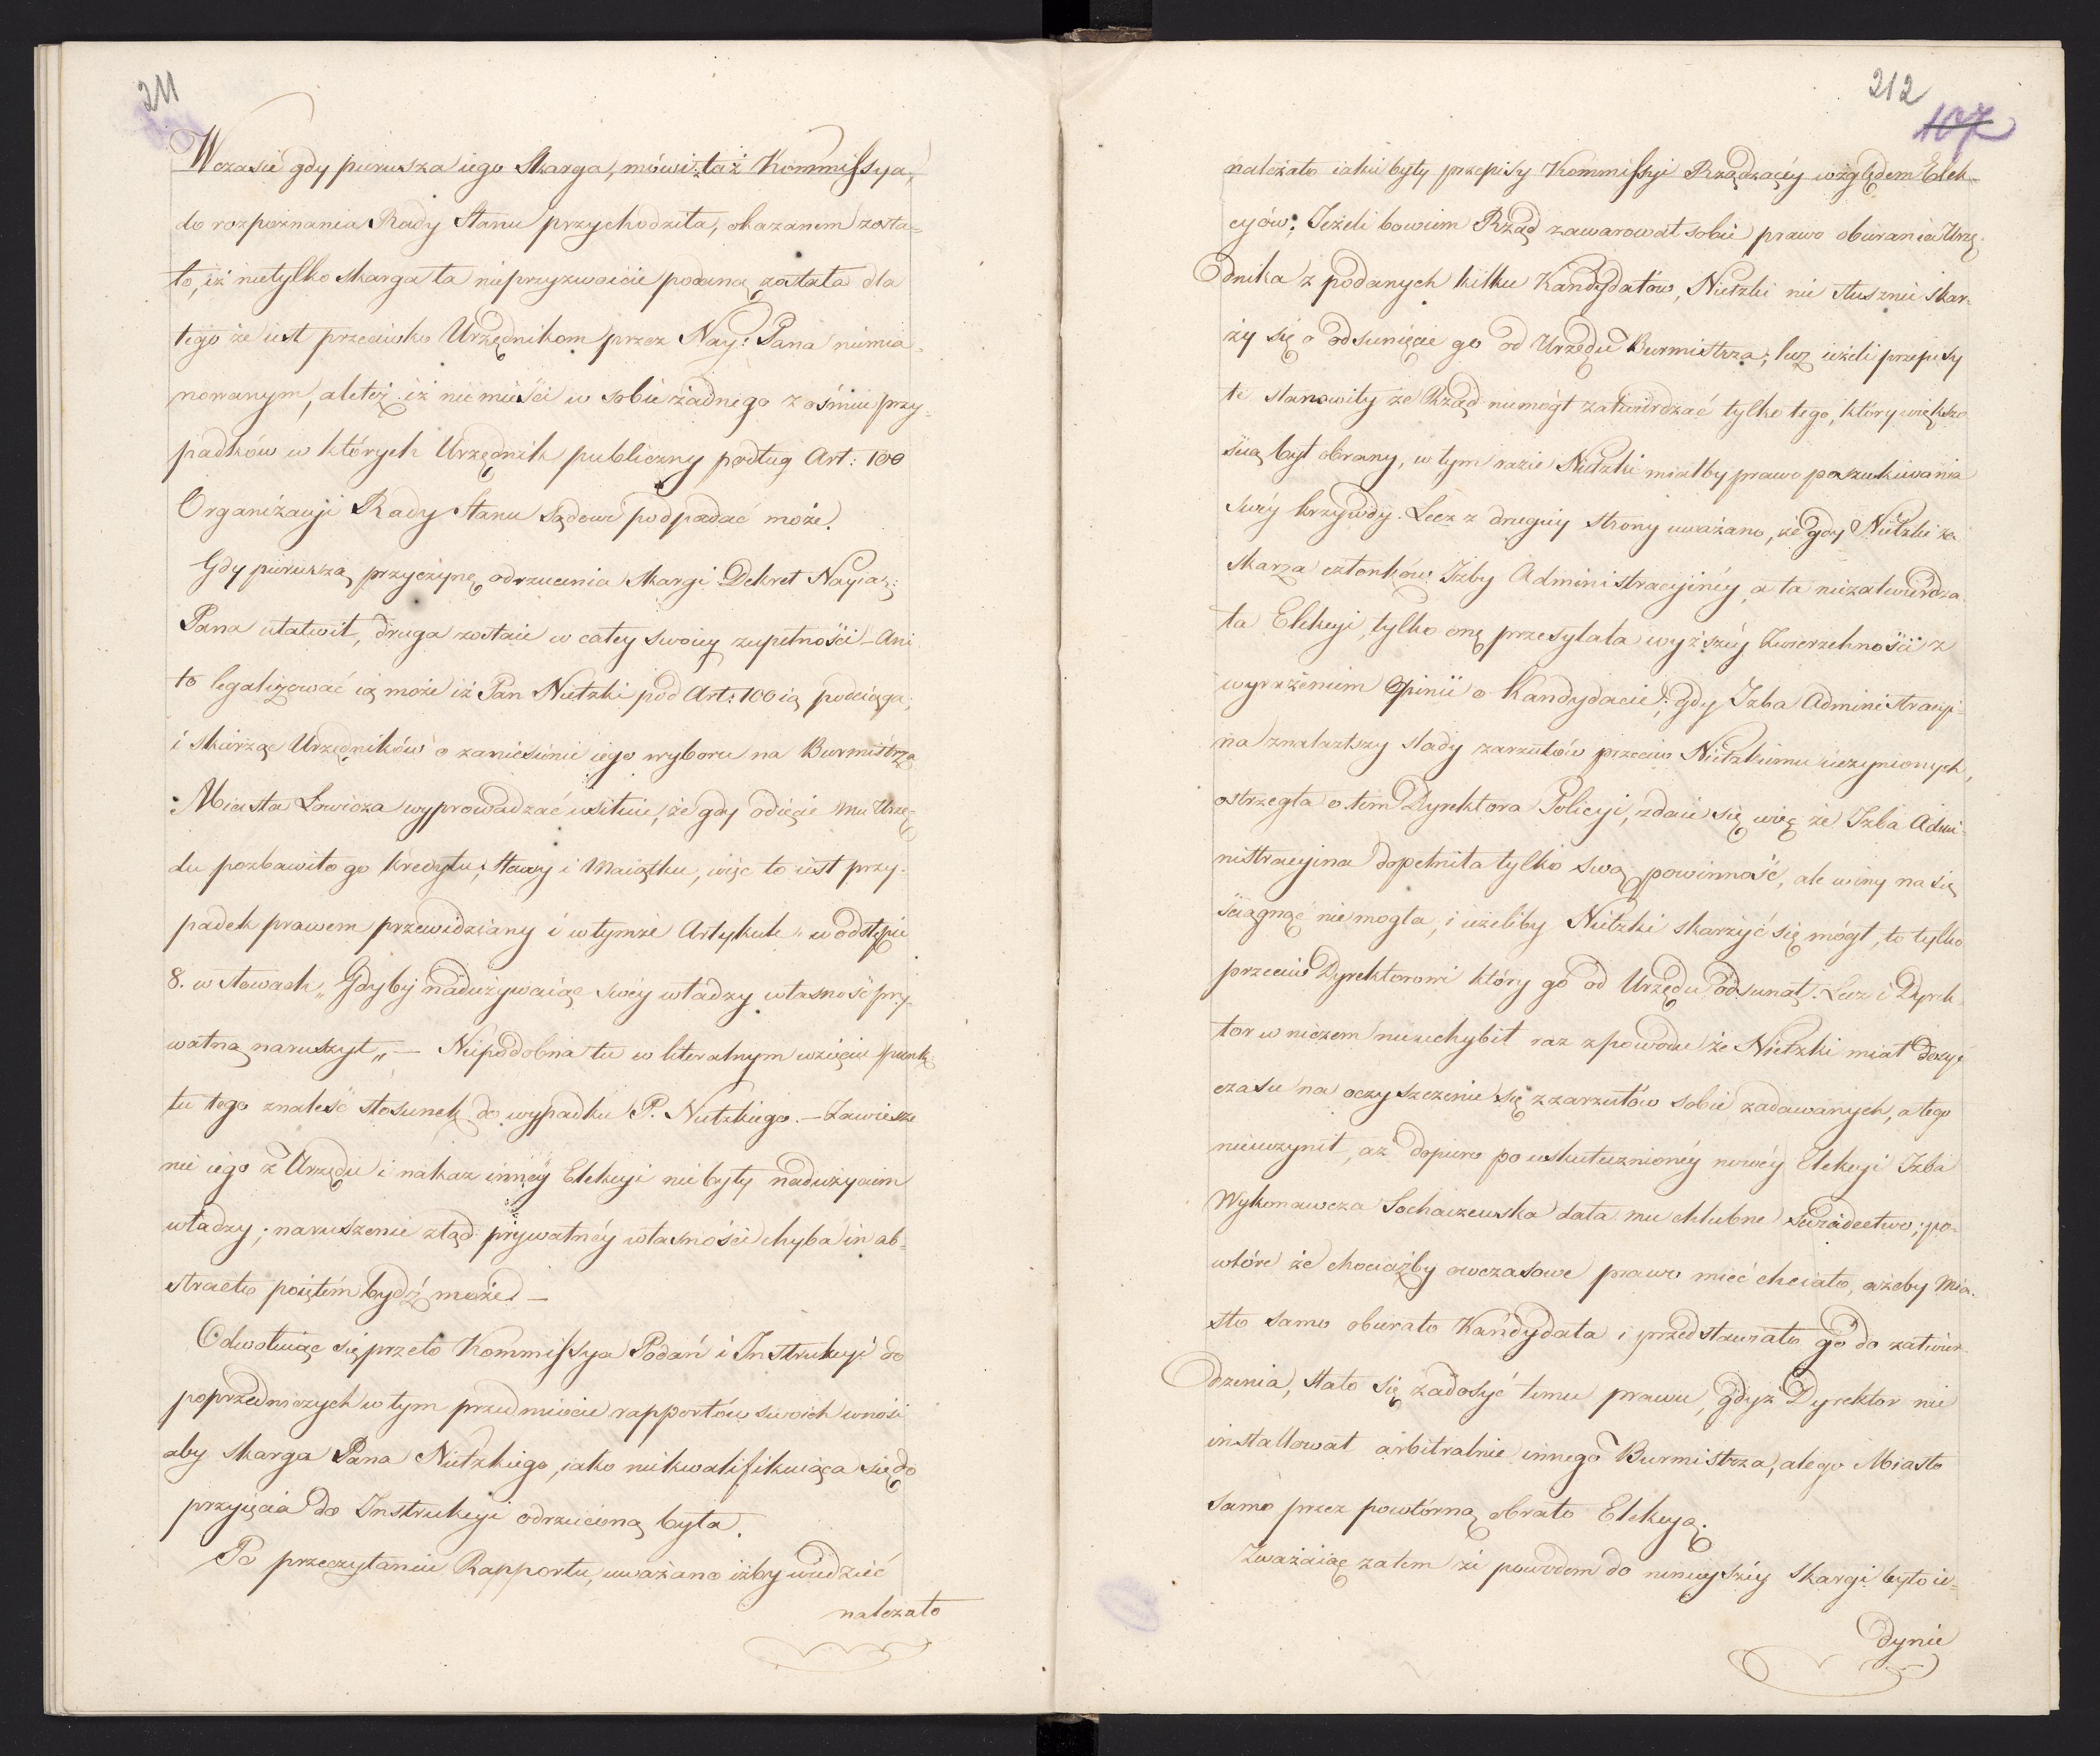 211
W czasie gdy pierwsza iego Skarga, mówi taż Kommissya,
do rozpoznania Rady Stanu przychodziła, okazanem zosta=
ło, iż nietylko skarga ta nieprzyzwoicie podaną została dla
tego że iest przeciwko Urzędnikom przez Nay: Pana niemia=
nowanym, ale też iż nie mieści w sobie żadnego z ośmiu przy=
padków w których Urzędnik publiczny podług Art: 100
Organizacyi Rady Stanu Sądowi podpadać może.
Gdy pierwszą przyczynę odrzucenia Skargi Dekret Nayias:
Pana ułatwił, druga zostaie w całey swoiey zupełności – Ani
to legalizować ią może iż Pan Nietzki pod Art: 100 ią podciąga,
i skarżąc Urzędników o zaniesienie iego wyboru na Burmistrza
Miasta Łowicza wyprowadzać usiłuie, że gdy odięcie mu Urzę=
du pozbawiło go kredytu, sławy i Maiątku, więc to iest przy=
padek prawem przewidziany i w tymże Artykule w odstępie
8. w słowach „Gdyby nadużywaiąc swéy władzy własność pry=
watną naruszył„ – Niepodobna tu w literalnym wzięciu punk=
tu tego znaleść stosunek do wypadku P. Nietzkiego. – Zawiesze
nie iego z Urzędu i nakaz innéy Elekcyi nie były nadużyciem
władzy; naruszenie ztąd prywatnéy własności chyba in ab=
stracto poiętém bydź może. –
Odwołuiąc się przeto Kommissya Podań i Instrukcyi do
poprzedniczych w tym przedmiocie rapportów swoich wnosi
aby skarga Pana Nietzkiego, iako niekwalifikuiąca się do
przyięcia do Instrukcyi odrzuconą była.
Po przeczytaniu Rapportu, uważano iżby wiedzieć
należało
212
107
należało iakie były przepisy Kommissyi Rządzącéy względem Elek=
cyów; Jeżeli bowiem Rząd zawarował sobie prawo obierania Urzę=
dnika z podanych kilku Kandydatów, Nietzki nie słusznie skar=
ży się o odsunięcie go od Urzędu Burmistrza; lecz ieżeli przepisy
te stanowiły że Rząd niemógł zatwierdzać tylko tego, który większo
ścią był obrany, w tym razie Nietzki miałby prawo poszukiwania
swéy krzywdy. Lecz z drugiéy strony uważano, że gdy Nietzki za
skarża członków Izby Administracyinéy, a ta niezatwierdza
ła Elekcyi, tylko onę przesyłała wyższéy Zwierzchności z
wyrażeniem Opinii o Kandydacie; gdy Izba Administracyi=
na znalazłszy ślady zarzutów przeciw Nietzkiemu uczynionych,
ostrzegła o tem Dyrektora Policyi, zdaie się więc że Izba Admi=
nistracyina dopełniła tylko swą powinność, ale winy na się
ściągnąć nie mogła, i ieżeliby Nietzki skarżyć się mógł, to tylko
przeciw Dyrektorowi który go od Urzędu odsunął. Lecz i Dyrek
tor w niczem nieuchybił raz z powodu że Nietzki miał dosyć
czasu na oczyszczenie się z zarzutów sobie zadawanych, a tego
nieuczynił, aż dopiero po uskutecznionéy nowéy Elekcyi Izba
Wykonawcza Sochaczewska dała mu chlubne świadectwo; po=
wtóre że chociażby owczasowe prawo mieć chciało, ażeby Mia=
sto samo obierało Kandydata i przedstawiało go do zatwier=
dzenia, stało się zadosyć temu prawu, gdyż Dyrektor nie
installował arbitralnie innego Burmistrza, ale go Miasto
samo przez powtórną obrało Elekcyą.
Zważaiąc zatem że powodem do ninieyszéy Skargi było ie=
dynie